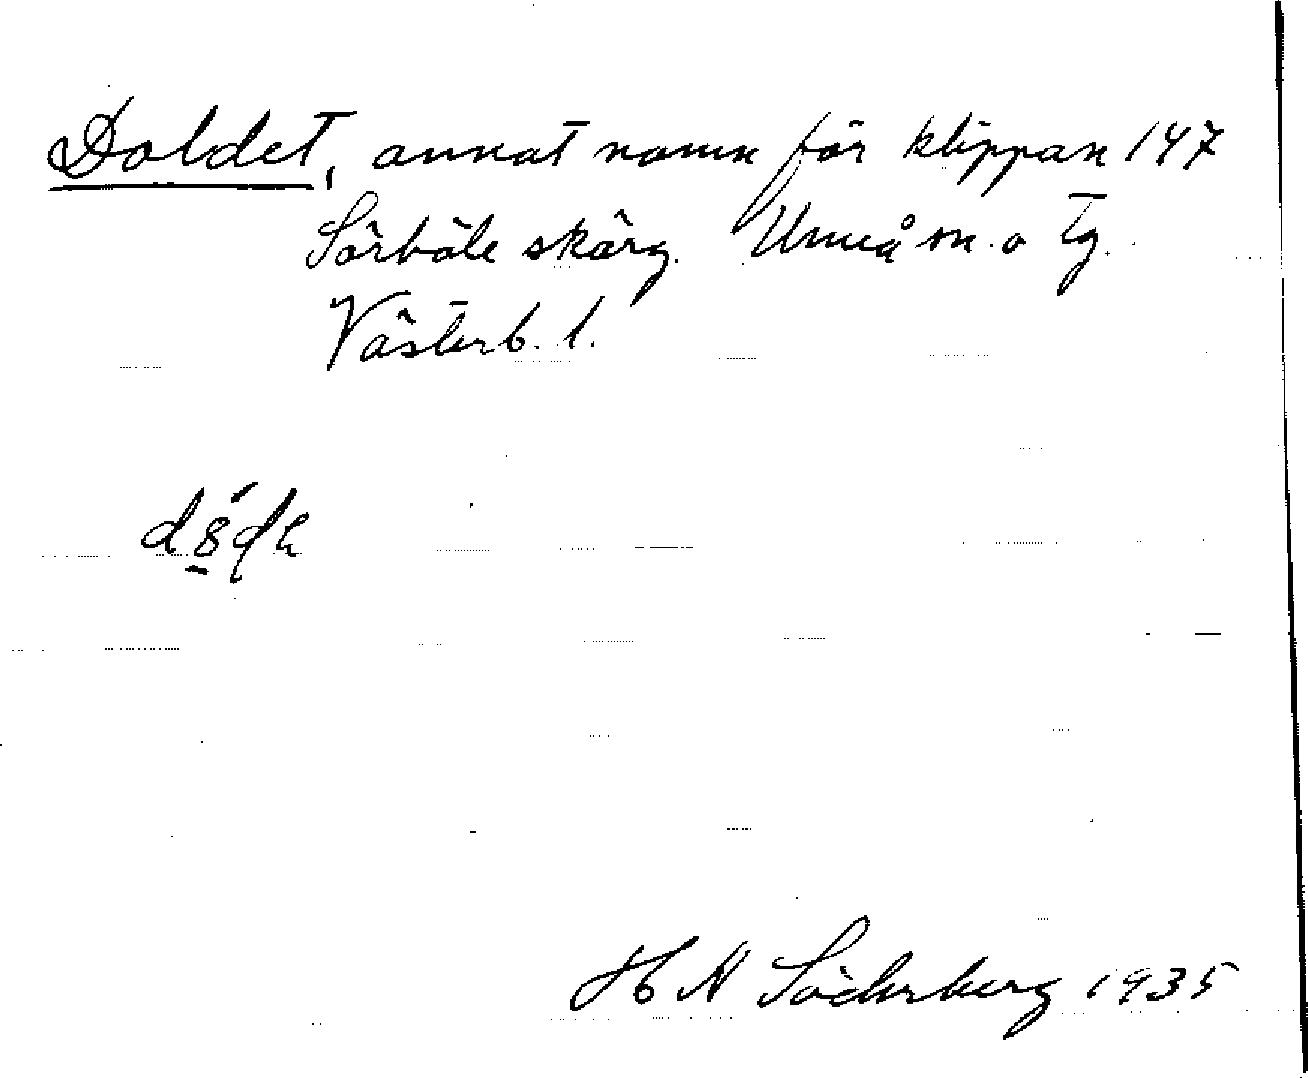 Doldet, annat namn för klippan 147
Sörböle skärg. Umeå sn. o Tg.
Västerb. l.
H N Söderberg 1935